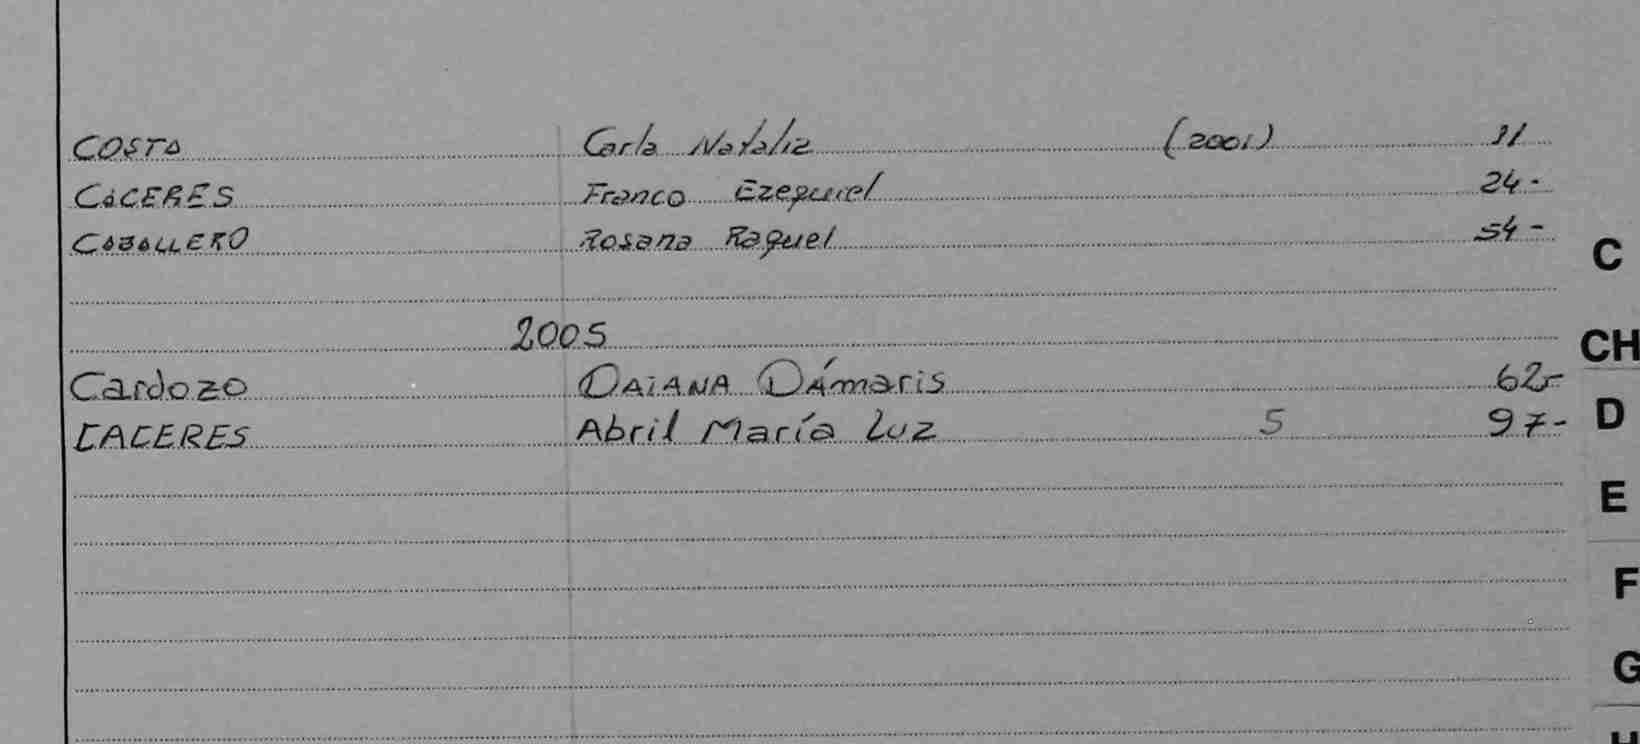 COSTA Carla Natalia (2001) 11
CÁCERES Franco Ezequiel 24-
CABALLERO Rosana Raquel 54-
C
2005
CH
Cardozo DAIANA DÁmaris 62-
D
CACERES Abril María Luz 5 97-
E
F
G
H